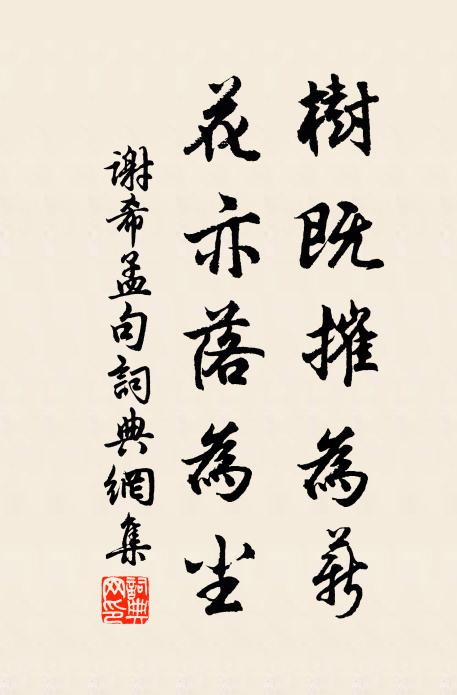 樹既摧為薪
花亦落為尘
謝希孟句詞典網集
詞典网印